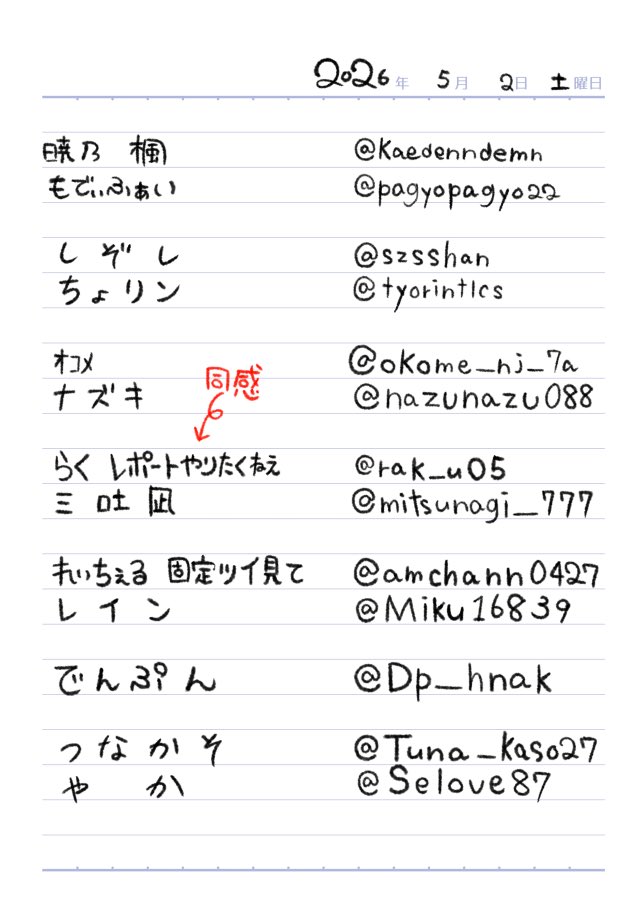 2026年 5月 2日 土曜日
暁乃 楓 @Kaedenndemn
もでぃふぁい @pagyopagyo22
しぞし @szsshan
ちょリン @tyorintlcs
オコメ @okome_nj_7a
同感
ナズキ @nazunazu088
らく レポートやりたくねぇ @rak_u05
三吐凪 @mitsunagi_777
れいちぇる 固定ツイ見て @amchann0427
レイン @Miku16839
でんぷん @Dp_hnak
つなかそ @Tuna_kaso27
やか @Selove87